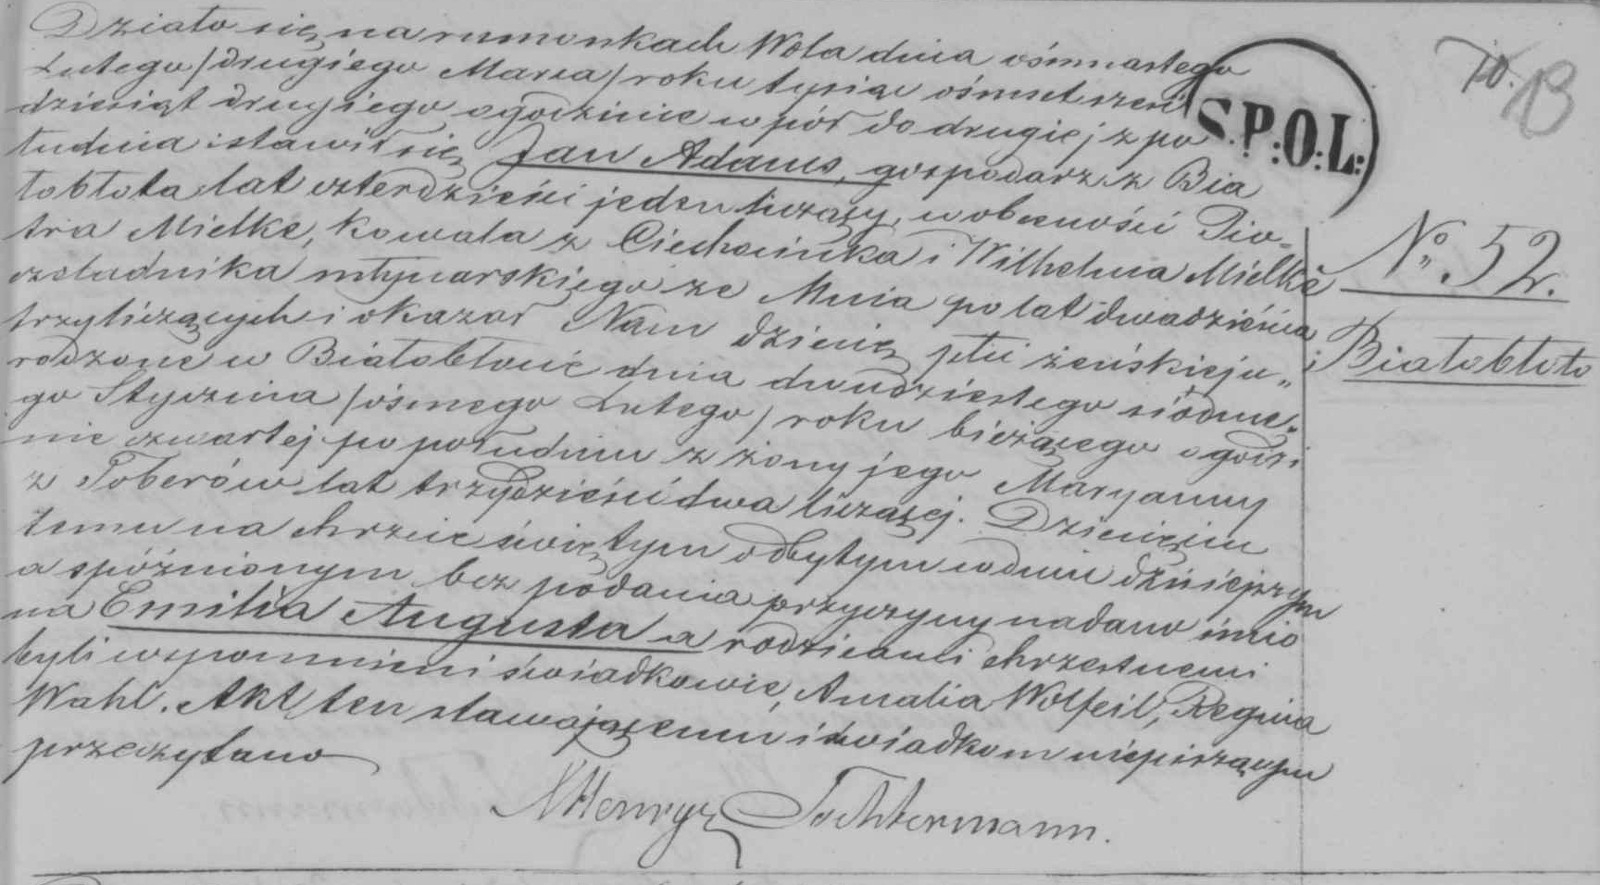 Działo się na rumunkach Wola dnia ośmnastego
Lutego /drugiego Marca/ roku tysiąc ośmset sześć
dziesiąt drugiego o godzinie w pół do drugiej z po
łudnia stawił się Jan Adams, gospodarz z Bia
łobłota lat czterdzieści jeden liczący, w obecności Pio-
tra Mielke, kowala z Ciechocinka i Wilhelma Mielke
czeladnika młynarskiego ze Mnia po lat dwadzieścia
trzy liczących i okazał Nam dziecię płci żeńskiej u„
rodzone w Białobłocie dnia dwudziestego siódme„
go Stycznia /ósmego Lutego/ roku bieżącego o godzi
nie czwartej po południu z żony jego Maryanny
z Toberów lat trzydzieści dwa liczącej. Dziecięciu
temu na chrzcie świętym odbytym w dniu dzisiejszym
a spóźnionym bez podania przyczyny nadano imio
na Emilia Augusta a rodzicami chrzestnemi
byli wspomnieni świadkowie, Amalia Wolfeil, Regina
Wahl. Akt ten stawającemu i świadkom niepiszącym
przeczytano
Henryz Tochtermann.
S.P:O:L:
70.
13
No. 52.
Białobłoto